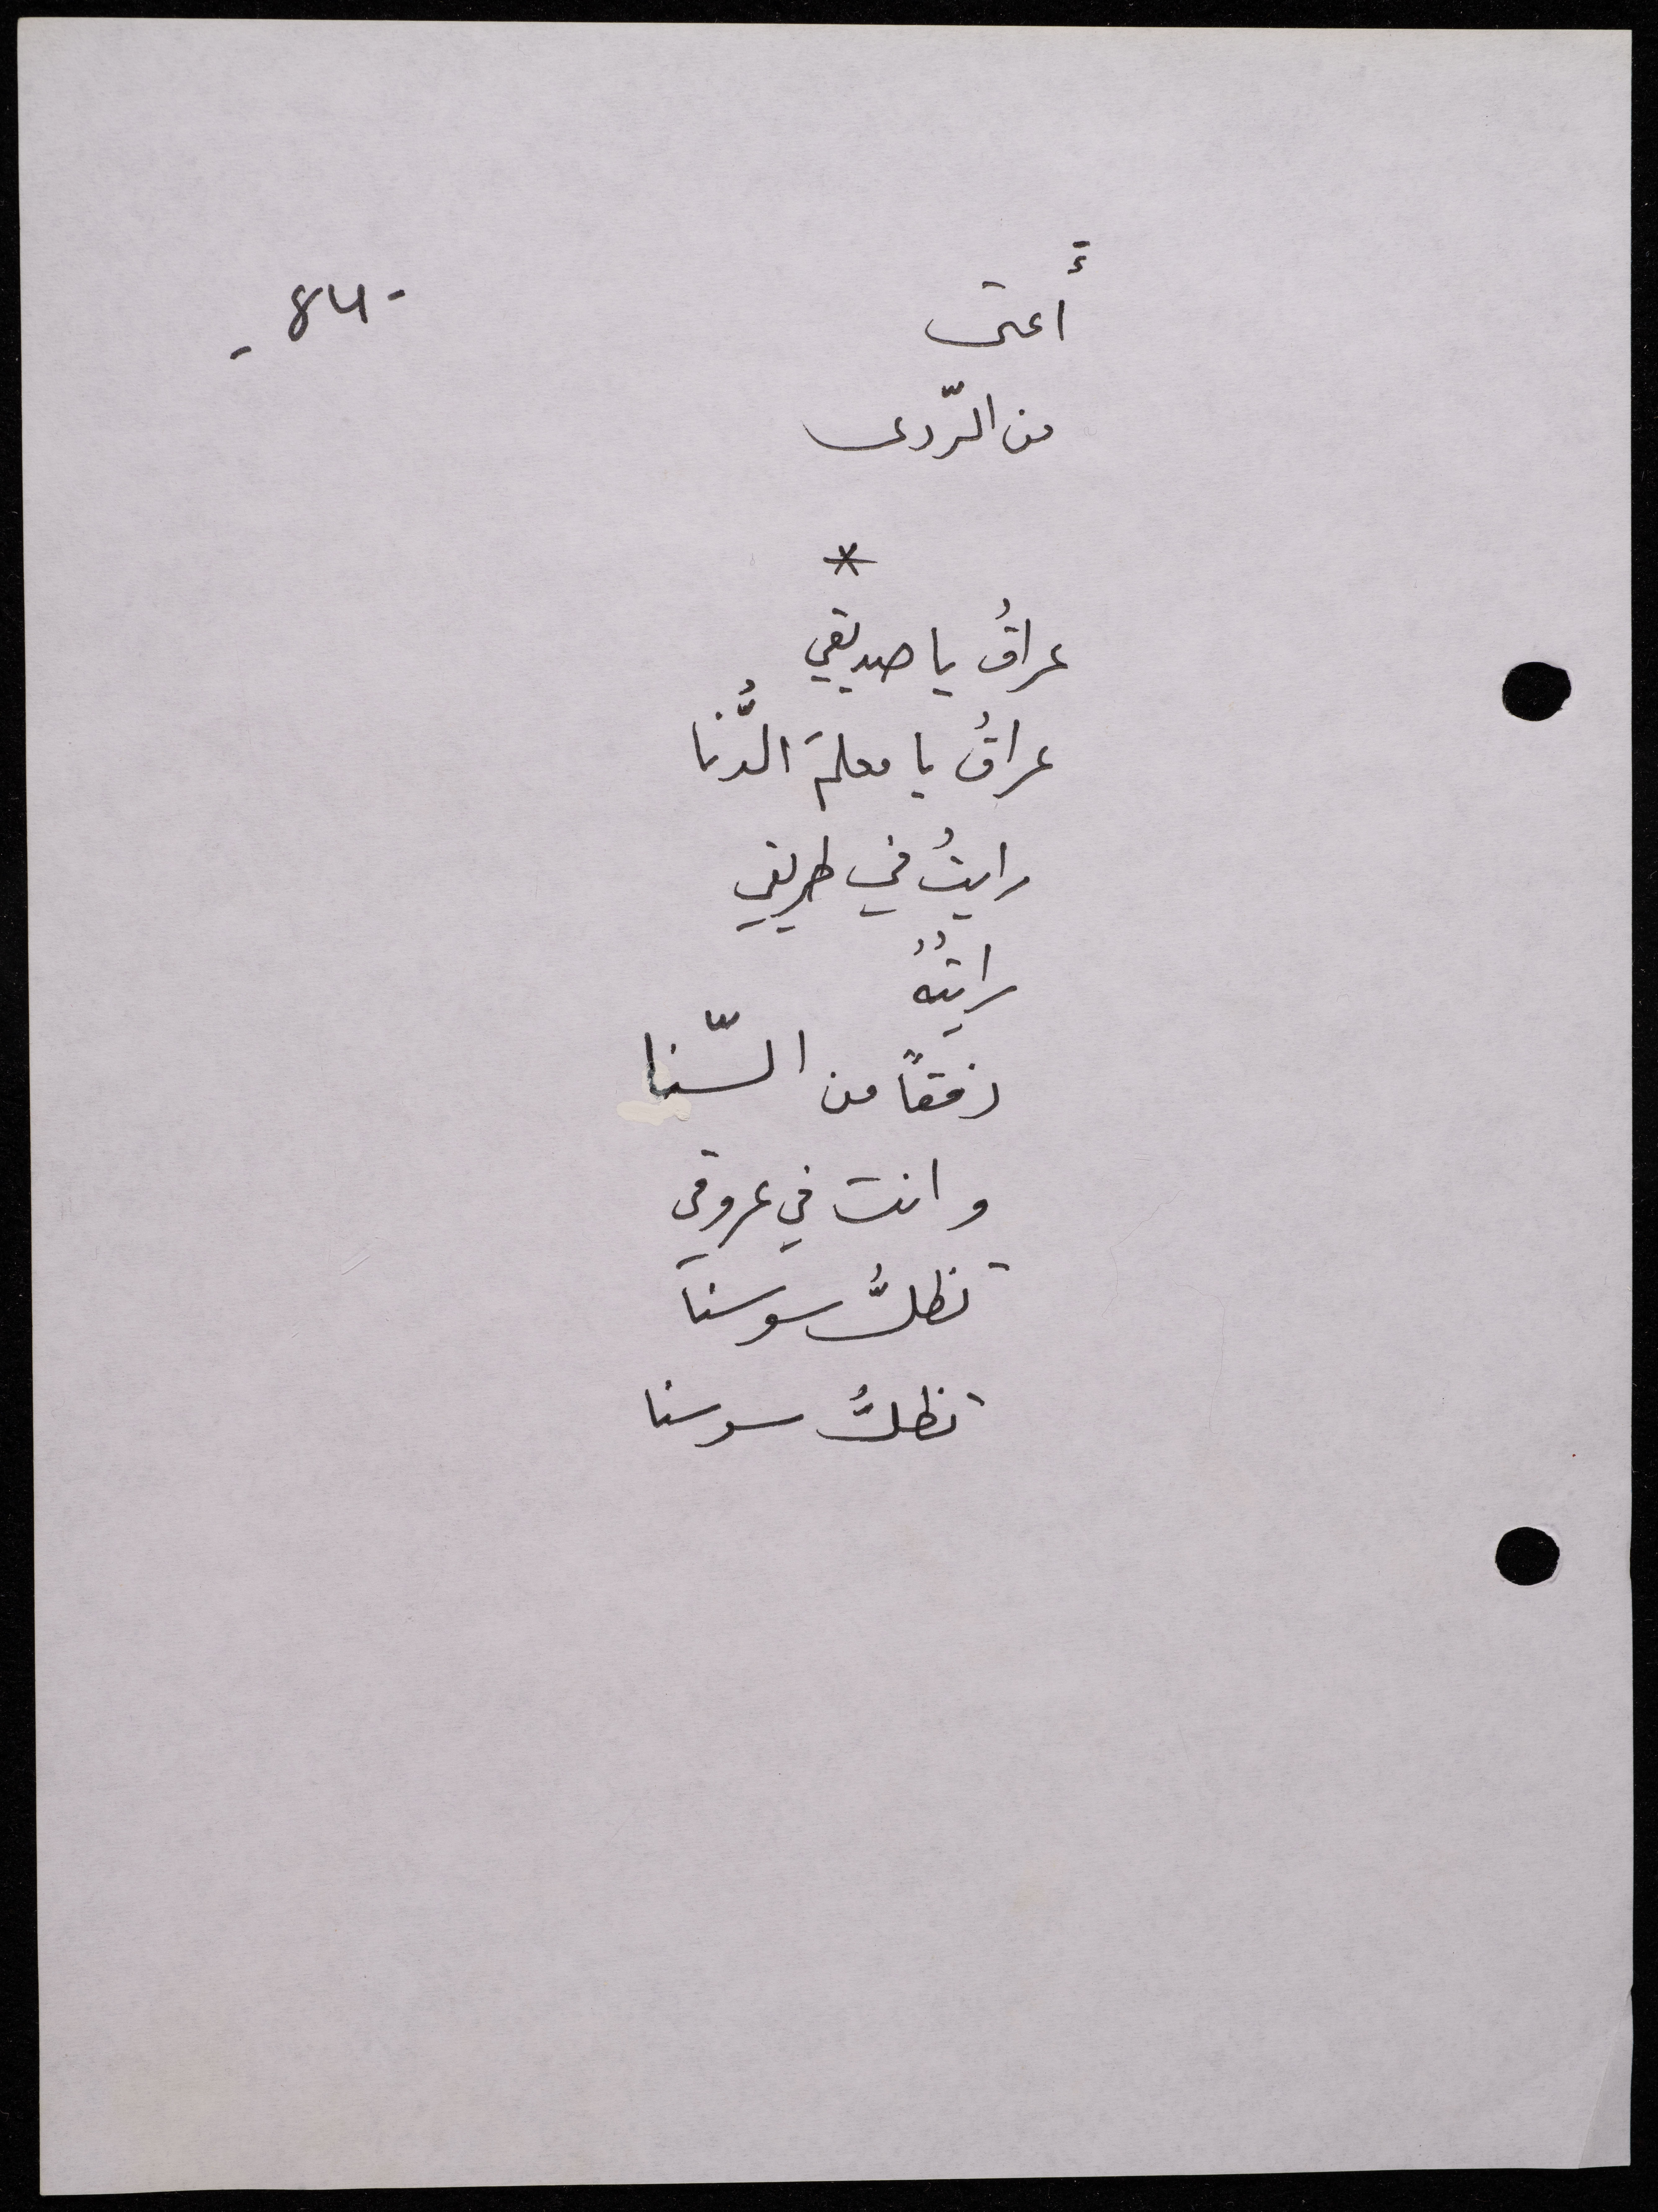 -84-
أعتى
من الرّدى
*
عراقُ يا صديقي
عراقُ يا معلمَ الدُّنا
رايتُ في طريقي
رايتُهُ
دفقاً من السّنا
وانت في عروقي
تظلُّ سوسنا
تظلُّ سوسنا